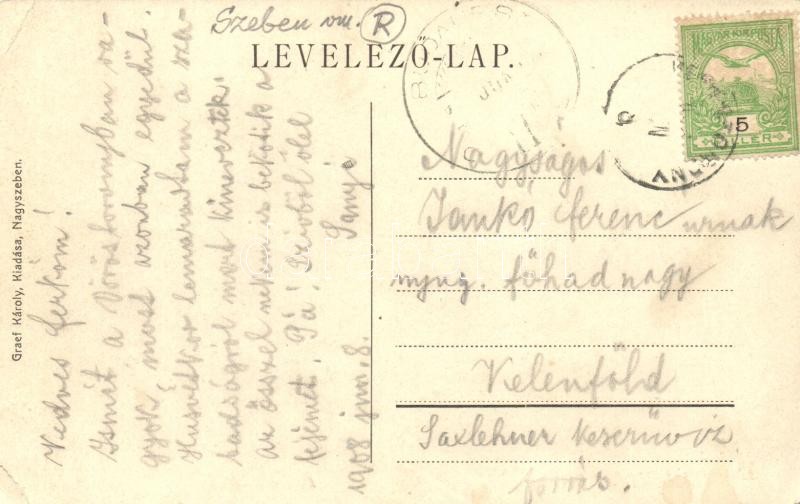 Szeben vm. R
LEVELEZŐ-LAP.
MAGYAR KIR. POSTA
5
FILLÉR
Graef Károly, Kiadása, Nagyszeben.
Kedves Ferkóm!
Ismét a Vöröstoronyban va-
gyok, most azonban egyedül.
Husvétkor lemaradtam a sza-
badságról mert kineveztek.
az ősszel nekem is bekötik a
fejemet. Pá! Szivből ölel
Sanyi
1908 jun. 8.
Nagyságos
Jankó Ferenc urnak
nyug. főhadnagy
Kelenföld
Saxlehner keserűvíz
forrás.